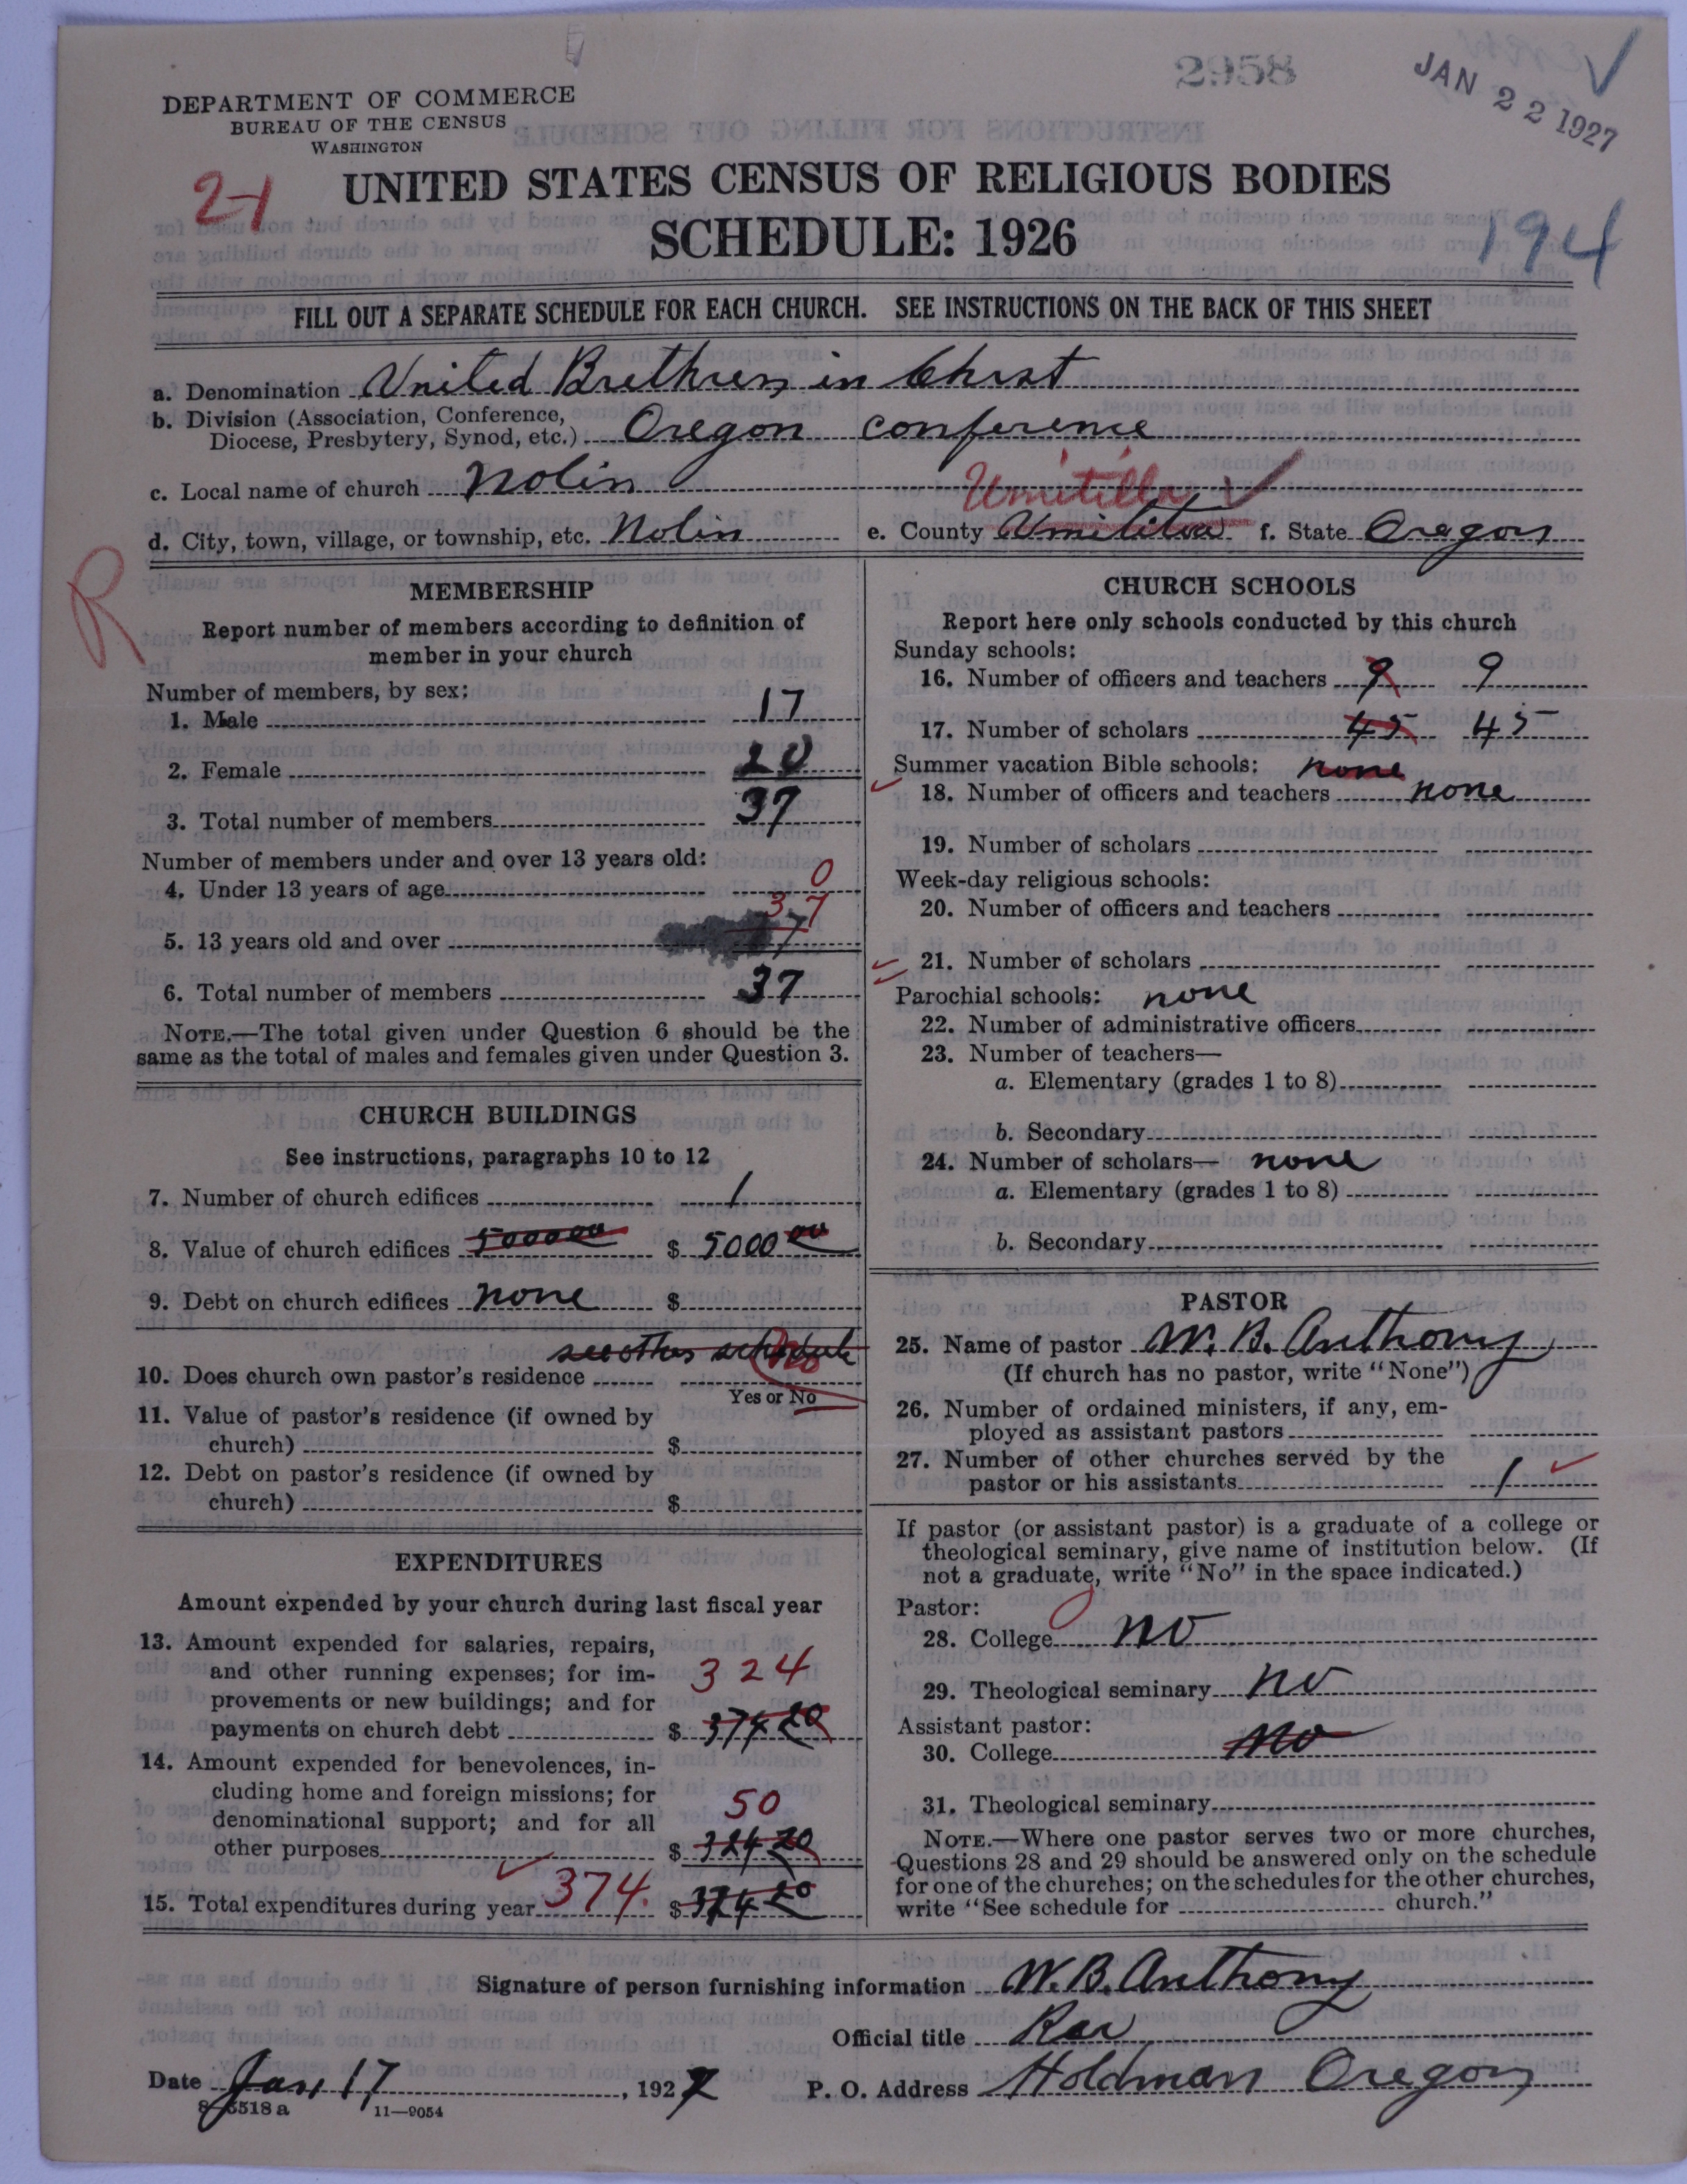 2958
JAN 22 1927
DEPARTMENT OF COMMERCE
BUREAU OF THE CENSUS
WASHINGTON
21
UNITED STATES CENSUS OF RELIGIOUS BODIES
SCHEDULE: 1926
194
FILL OUT A SEPARATE SCHEDULE FOR EACH CHURCH. SEE INSTRUCTIONS ON THE BACK OF THIS SHEET
a. Denomination United Brethren in Christ
b. Division (Association, Conference,
Diocese, Presbytery, Synod, etc.) Oregon conference
c. Local name of church Nolin
Umitilla
d. City, town, village, or township, etc. Nolin e. County f. State Oregon
R
MEMBERSHIP
Report number of members according to definition of
member in your church
Number of members, by sex:
1. Male 17
2. Female 20
3. Total number of members 37
Number of members under and over 13 years old:
4. Under 13 years of age 0
5. 13 years old and over 37
6. Total number of members 37
NOTE.—The total given under Question 6 should be the
same as the total of males and females given under Question 3.
CHURCH BUILDINGS
See instructions, paragraphs 10 to 12
7. Number of church edifices 1
8. Value of church edifices 500000 $ 5000 00
9. Debt on church edifices none $
see other schedule
10. Does church own pastor's residence No
Yes or No
11. Value of pastor's residence (if owned by
church) $
12. Debt on pastor's residence (if owned by
church) $
EXPENDITURES
Amount expended by your church during last fiscal year
13. Amount expended for salaries, repairs,
and other running expenses; for im-
provements or new buildings; and for
324
payments on church debt $ 374 20
14. Amount expended for benevolences, in-
cluding home and foreign missions; for
denominational support; and for all
50
other purposes $ 324 20
15. Total expenditures during year 374. $ 374 20
CHURCH SCHOOLS
Report here only schools conducted by this church
Sunday schools:
16. Number of officers and teachers 9 9
17. Number of scholars 45 45
Summer vacation Bible schools: none
18. Number of officers and teachers none
19. Number of scholars
Week-day religious schools:
20. Number of officers and teachers
21. Number of scholars
Parochial schools: none
22. Number of administrative officers
23. Number of teachers—
a. Elementary (grades 1 to 8)
b. Secondary
24. Number of scholars— none
a. Elementary (grades 1 to 8)
b. Secondary
PASTOR
25. Name of pastor W. B. Anthony
(If church has no pastor, write "None")
26. Number of ordained ministers, if any, em-
ployed as assistant pastors
27. Number of other churches served by the
pastor or his assistants 1
If pastor (or assistant pastor) is a graduate of a college or
theological seminary, give name of institution below. (If
not a graduate, write "No" in the space indicated.)
Pastor:
28. College no
29. Theological seminary no
Assistant pastor:
30. College no
31. Theological seminary
NOTE.—Where one pastor serves two or more churches,
Questions 28 and 29 should be answered only on the schedule
for one of the churches; on the schedules for the other churches,
write "See schedule for church."
Signature of person furnishing information W. B. Anthony
Official title Rev
Date Jan 17, 1927 P. O. Address Holdman Oregon
11—9054